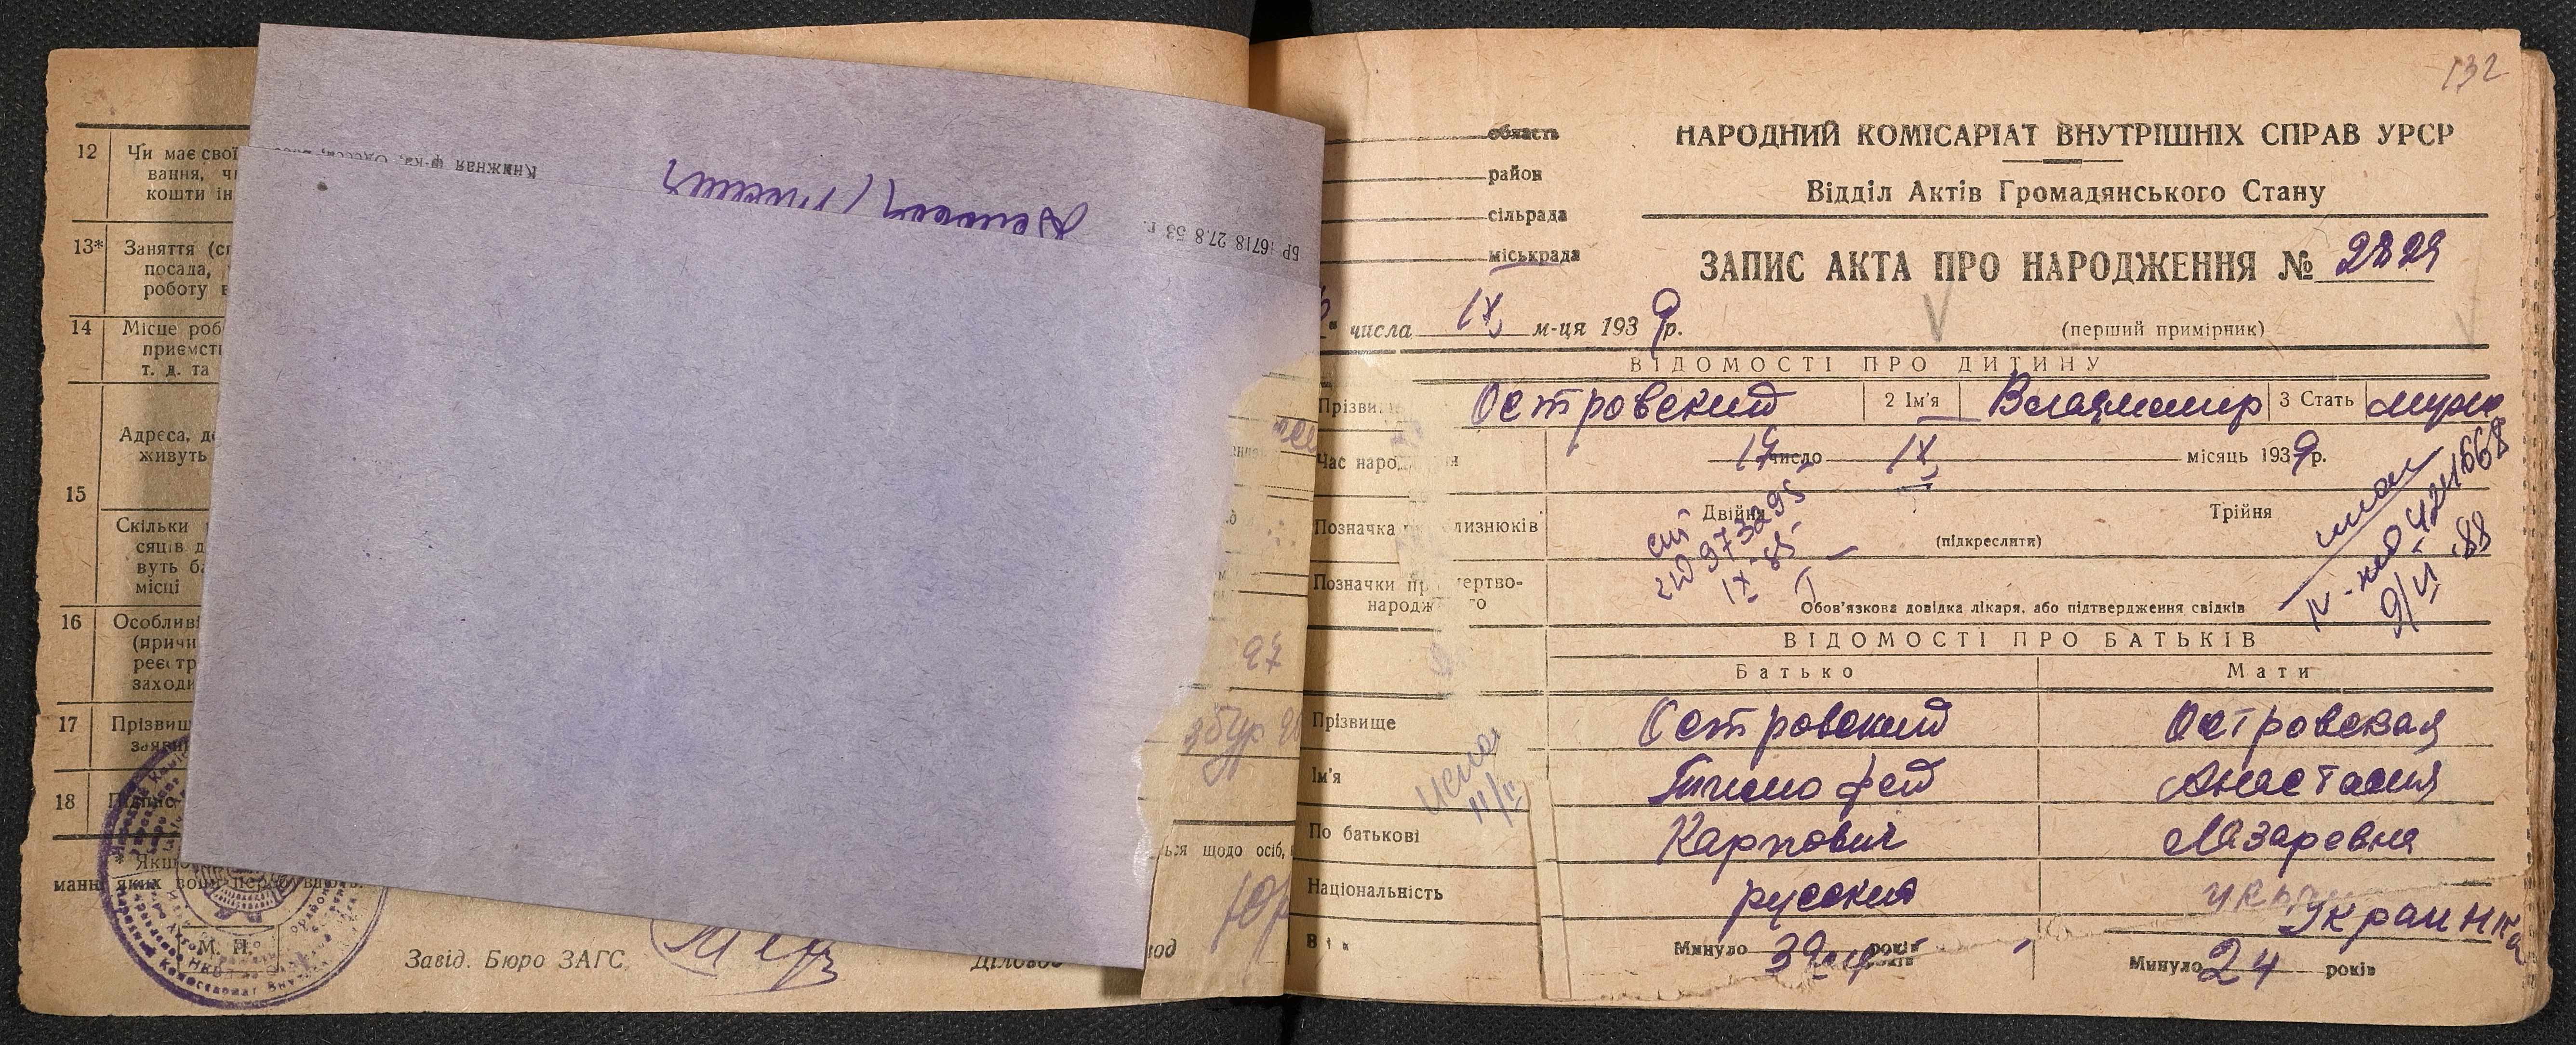 12 Чи має свої
вання, чи
кошти ін
13* Заняття (сп
посада,
роботу в
14 Місце роб
приємств
т. д. та
15
Адреса, де
живуть
Скільки
сяців д
вуть ба
місці
16 Особливі
(причи
реєстр
заходи
17 Прізвищ
заявни
18 Підпис
* Якщо
ться щодо осіб,
манні яких вони перебувають.
М. П.
Завід. Бюро ЗАГС
Діловод
Книжная ф-ка, Одесса,
БР 16718 27.8 53 г.
132
область
район
сільрада
міськрада
НАРОДНИЙ КОМІСАРІАТ ВНУТРІШНІХ СПРАВ УРСР
Відділ Актів Громадянського Стану
ЗАПИС АКТА ПРО НАРОДЖЕННЯ № 2829
" числа IX м-ця 1939 р.
(перший примірник)
ВІДОМОСТІ ПРО ДИТИНУ
Прізви Островский 2 Ім'я Владимир 3 Стать муж
Час народ ня число IX місяць 1939 р.
Позначка лизнюків Двійня Трійня
(підкреслити)
Позначки пр мертво-
народж го
Обов'язкова довідка лікаря, або підтвердження свідків
IX 65
9/VI 88
ВІДОМОСТІ ПРО БАТЬКІВ
Батько Мати
Прізвище Островский Островская
Ім'я Тимофей Анастасия
По батькові Карпович Лазаревна
Національність русский украинка
Вік Минуло 39 років Минуло 24 років